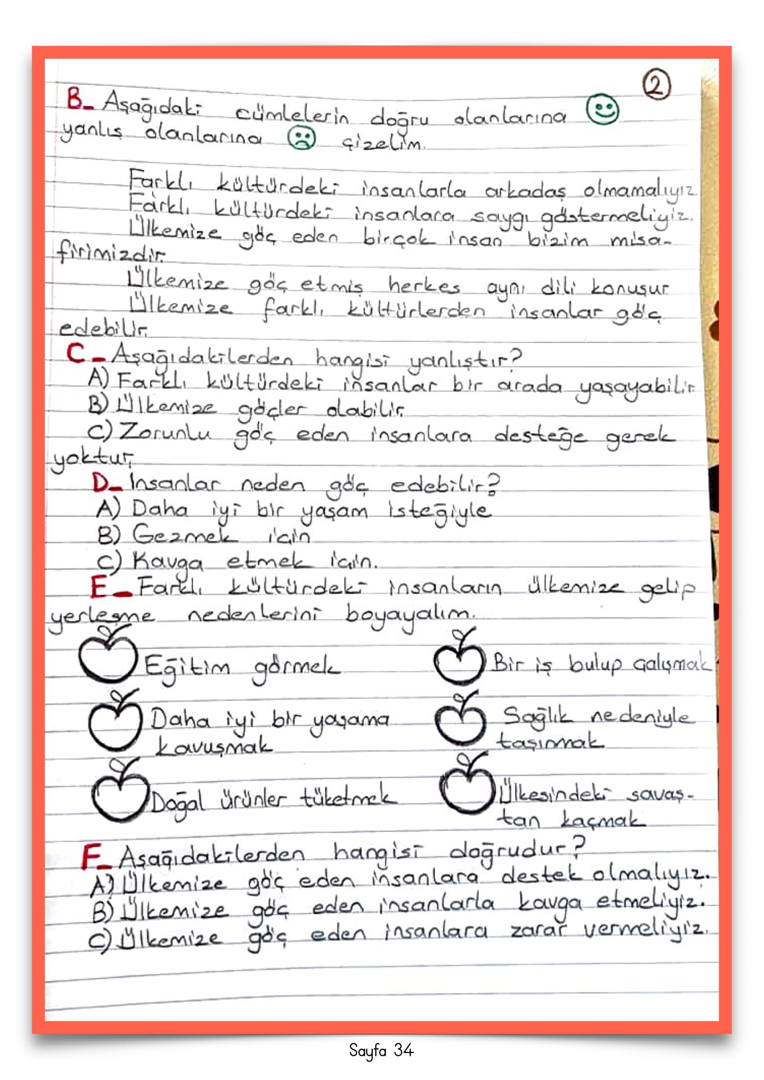 2
B- Aşağıdaki cümlelerin doğru olanlarına
yanlış olanlarına çizelim.
Farklı kültürdeki insanlarla arkadaş olmamalıyız
Farklı kültürdeki insanlara saygı göstermeliyiz.
Ülkemize göç eden birçok insan bizim misa-
firimizdir.
Ülkemize göç etmiş herkes aynı dili konuşur
Ülkemize farklı kültürlerden insanlar göç
edebilir.
C- Aşağıdakilerden hangisi yanlıştır?
A) Farklı kültürdeki insanlar bir arada yaşayabilir
B) Ülkemize göçler olabilir.
C) Zorunlu göç eden insanlara desteğe gerek
yoktur.
D- İnsanlar neden göç edebilir?
A) Daha iyi bir yaşam isteğiyle
B) Gezmek için
C) Kavga etmek için.
E- Farklı kültürdeki insanların ülkemize gelip
yerleşme nedenlerini boyayalım.
Eğitim görmek
Bir iş bulup çalışmak
Daha iyi bir yaşama
kavuşmak
Sağlık nedeniyle
taşınmak
Doğal ürünler tüketmek
Ülkesindeki savaş-
tan kaçmak
F- Aşağıdakilerden hangisi doğrudur?
A) Ülkemize göç eden insanlara destek olmalıyız.
B) Ülkemize göç eden insanlarla kavga etmeliyiz.
C) Ülkemize göç eden insanlara zarar vermeliyiz.
Sayfa 34